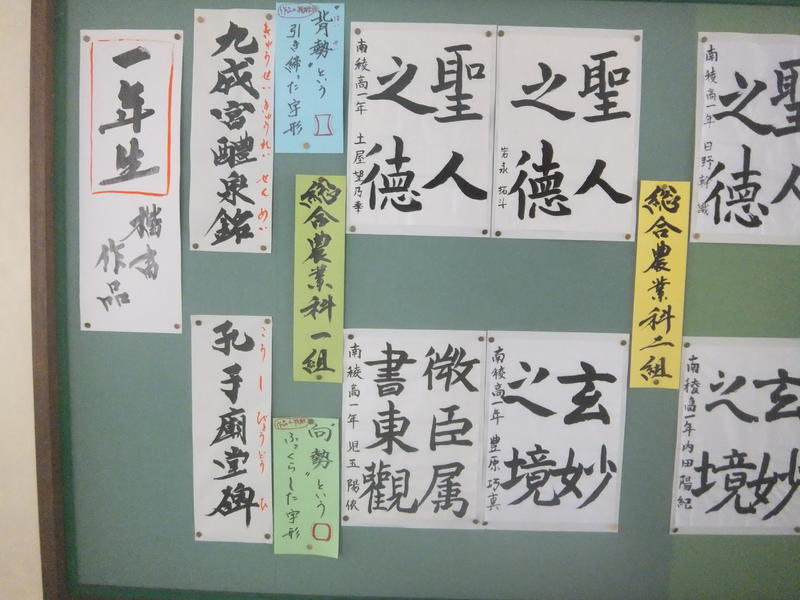 一年生
楷書
作品
九成宮醴泉銘
きゅうせいきゅうれいせんめい
"背勢"という
引き締った字形
総合農業科一組
聖人
之德
南稜高一年 土屋望乃華
聖人
之德
岩永拓斗
総合農業科二組
聖
之德
南稜高一年 日野
孔子廟堂碑
こうしびょうどうひ
"向勢"という
ふっくらした字形
微臣属
書東觀
南稜高一年 児玉陽依
玄妙
之境
南稜高一年 豊原巧真
玄妙
之境
南稜高一年 内田陽紀